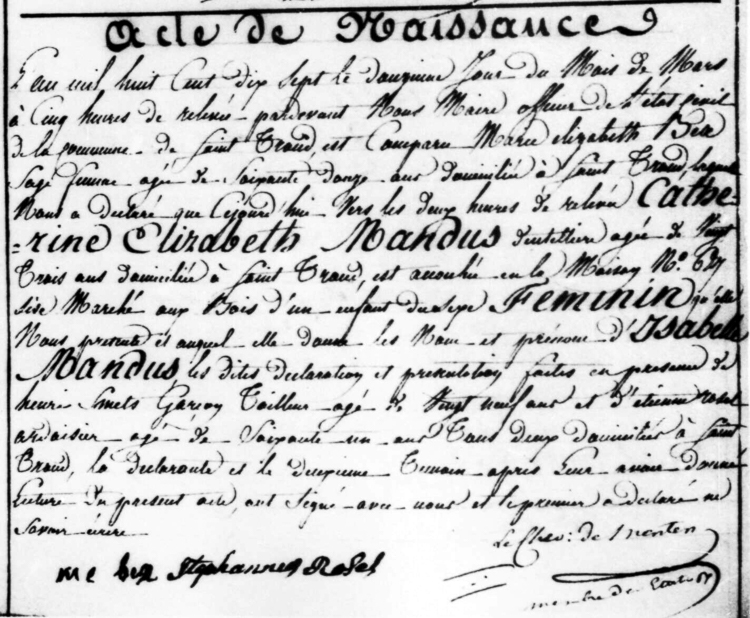 Acte de Naissance
L'an mil huit Cent dix sept le douzieme Jour du Mois de Mars
à Cinq heures de relevée pardevant Nous Maire officier de l'état civil
de la commune de Saint Trond, est Comparu Marie elizabeth Bex
Sage femme agée de Soixante douze ans domiciliée à Saint Trond, laquelle
Nous a declaré que Cejourd'hui vers les deux heures de relevée Cathe-
-rine Elizabeth Mandus dentelliere agée de Vingt
Trois ans domiciliée à Saint Trond, est accouchée en la Maison No. 637
sise Marché aux Bois d'un enfant du sexe Feminin qu'elle
Nous presente et auquel elle donne les Nom et prénom d'Isabelle
Mandus, les dites declaration et presentation faites en presence de
henri Smets Garçon Tailleur agé de Vingt neuf ans et d'etienne
ardoisier agé de Soixante un ans Tous deux domiciliés à Saint
Trond, la declarante et le deuxieme Temoin apres leur avoir donné
Lecture du present acte, ont Signé avec nous et le premier a declaré ne
Savoir écrire
Le Chev: de
me bex Stephannes
membre de